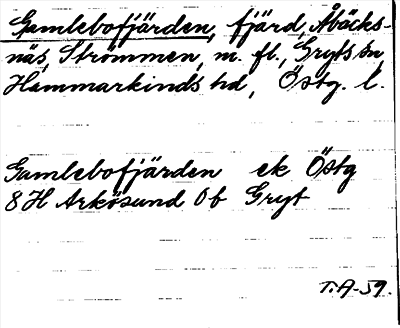 Gamlebofjärden, fjärd, Åbäcks-
näs, Strömmen, m. fl., Gryts sn,
Hammarkinds hd, Östg. l.
Gamlebofjärden ek Östg
8H Arkösund 0b Gryt
T.A-59.